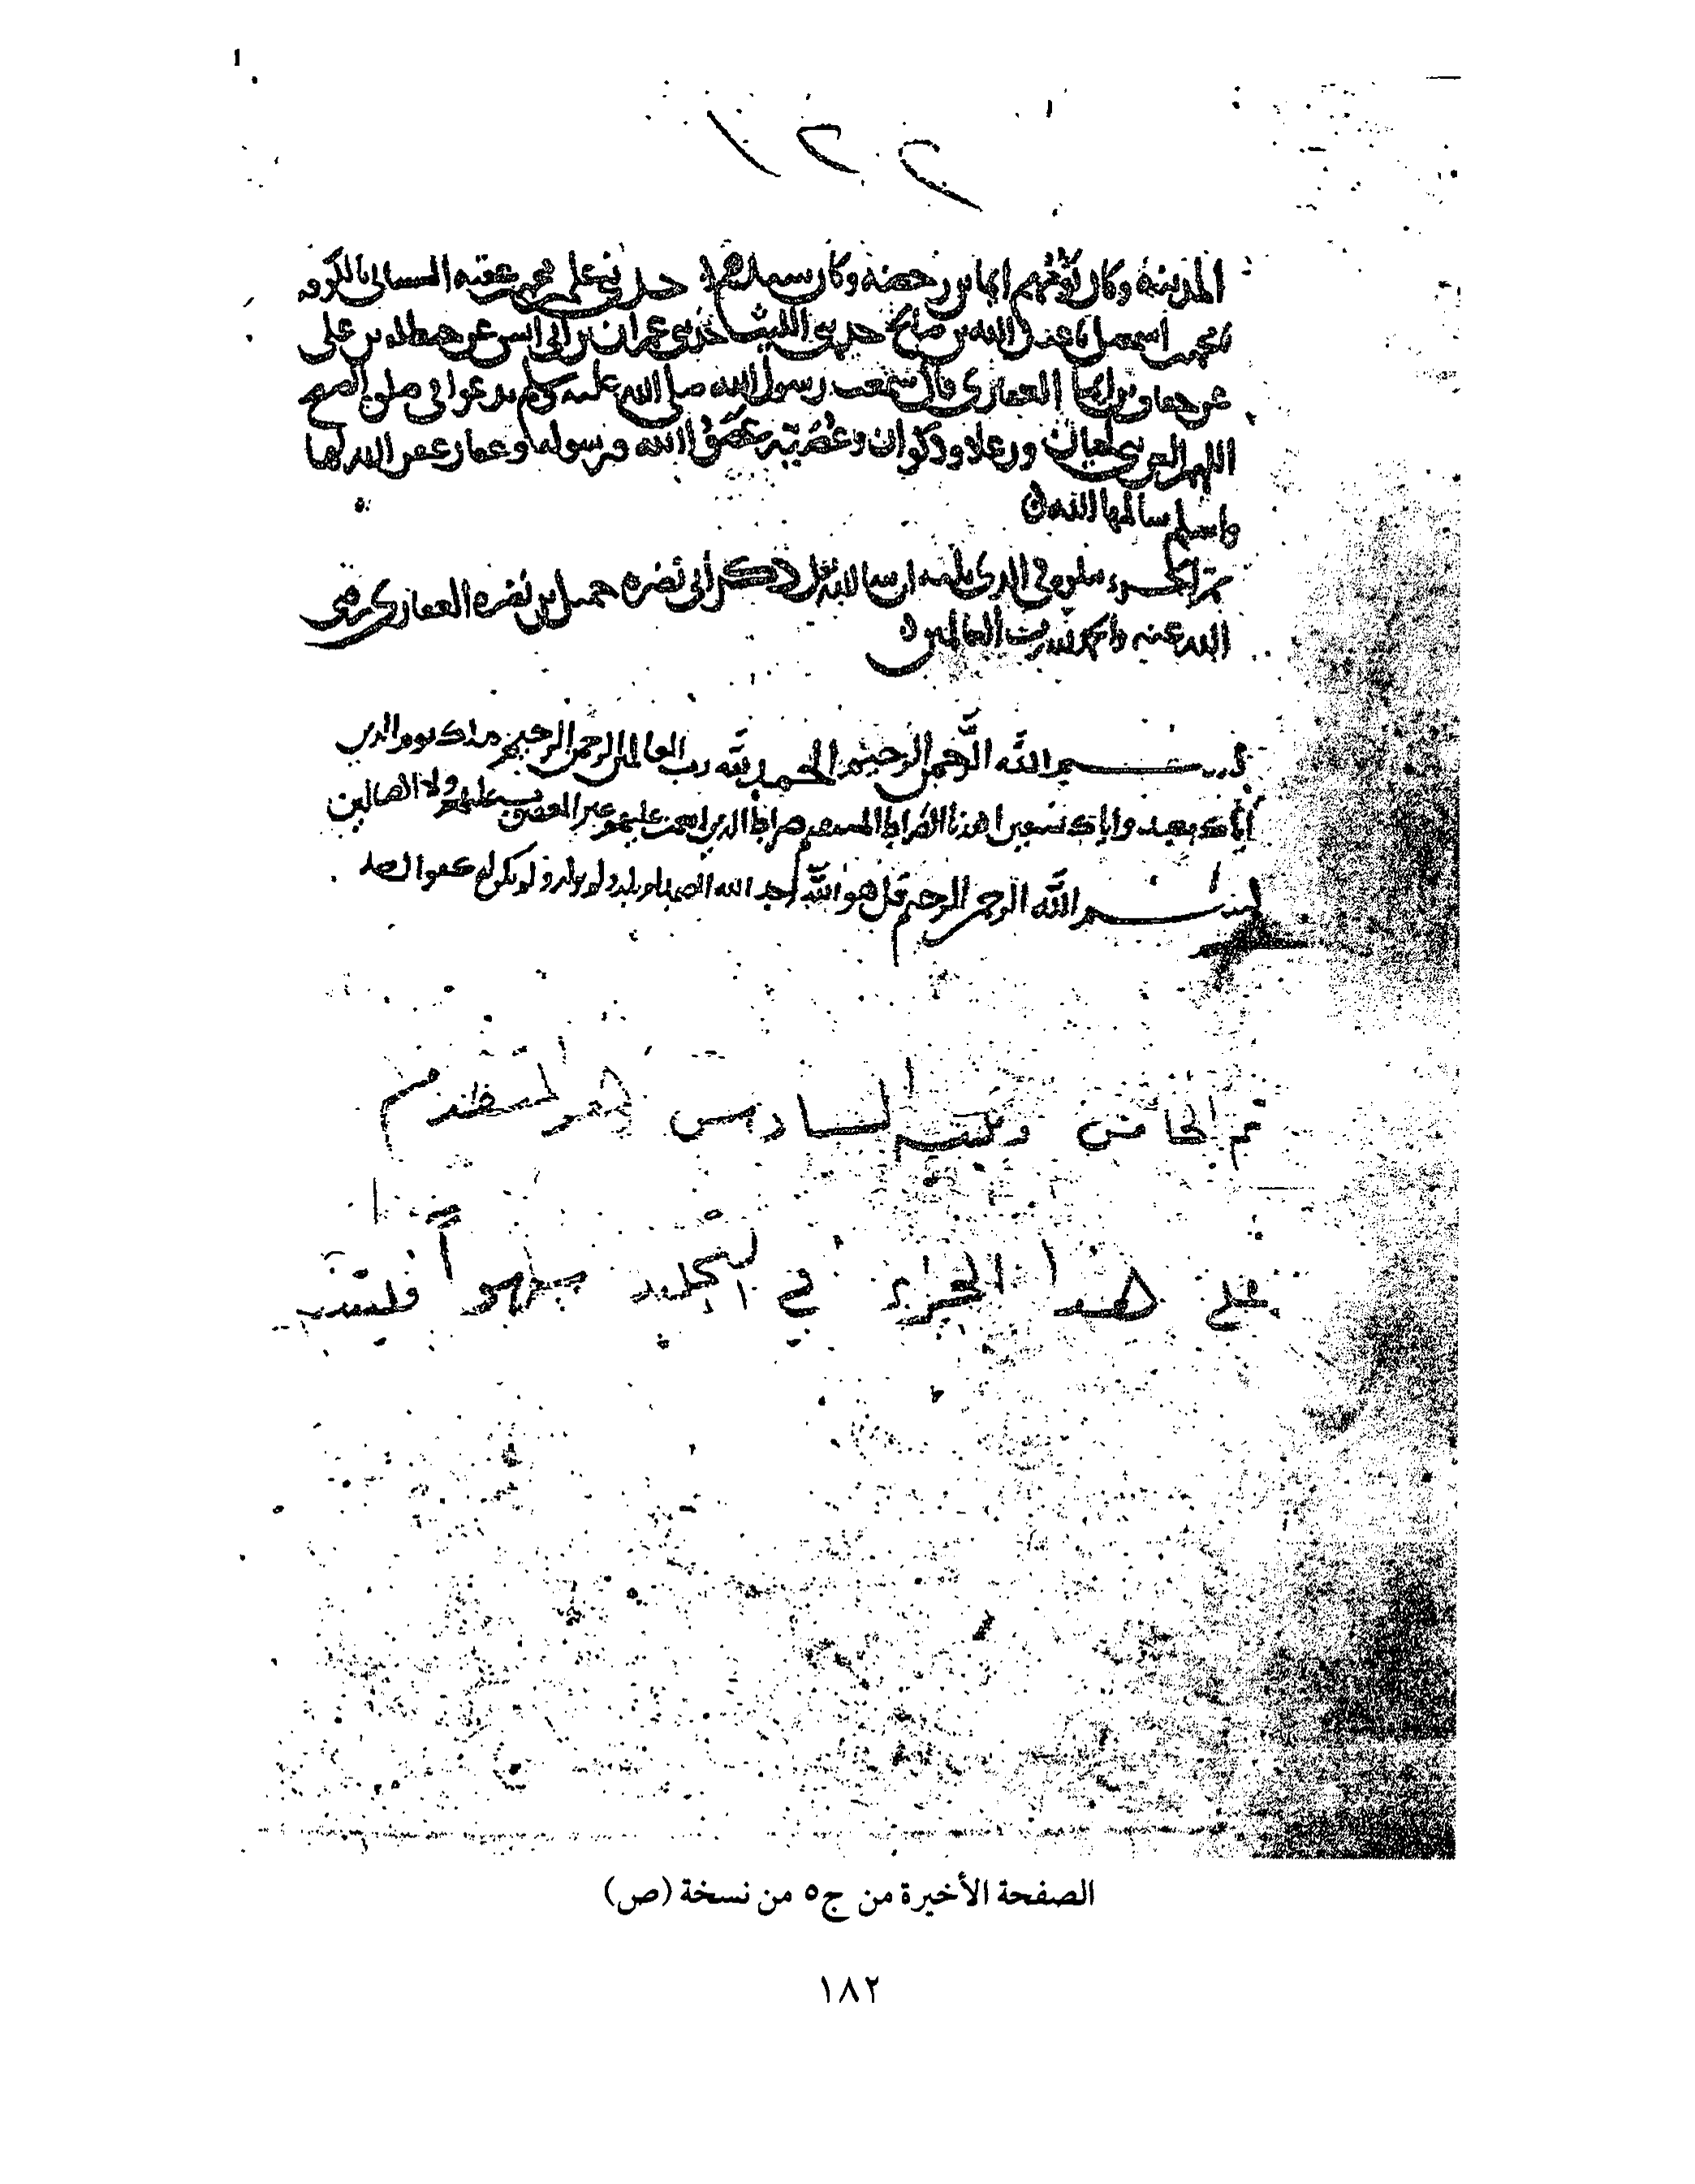 ١٢٢
المدينة وكان يؤمهم ايما بن رحضه وكان سيدهم حدثني علي بن محمد بن عقبه الشيباني بالكوفه
نا محمد بن اسمعيل نا عبد الله بن صالح حدثني الليث حدثني عمران بن ابي انس عن حنظله بن علي
عن خفاف بن ايما الغفاري قال سمعت رسول الله صلى الله عليه وسلم يدعوا في صلوه الصبح
اللهم العن بني لحيان ورعلا وذكوان وعُصَيّة عصوُا الله ورسوله وغفار غفر الله لها
واسلم سالمها الله
تم الجزء يتلوه في الذي يليه ان شا الله ذكر ابي نضره جميل بن نضره الغفاري رضي
الله عنه والحمد لله رب العالمين
بسم الله الرَّحمن الرحيم الحمد لله رب العالمين الرحمن الرحيم ملك يوم الدين
اياك نعبد واياك نستعين اهدنا الصراط المستقيم صراط الذين انعمت عليهم غير المغضوب عليهم ولا الضالين
بسم الله الرحمن الرحيم قل هو الله احد الله الصمد لم يلد ولم يولد ولم يكن له كفوا احد
تم الخامس ويليه السادس هو المتقدم
على هذا الجزء في التجليد سهواً فليتنبه
الصفحة الأخيرة من ج٥ من نسخة (ص)
١٨٢